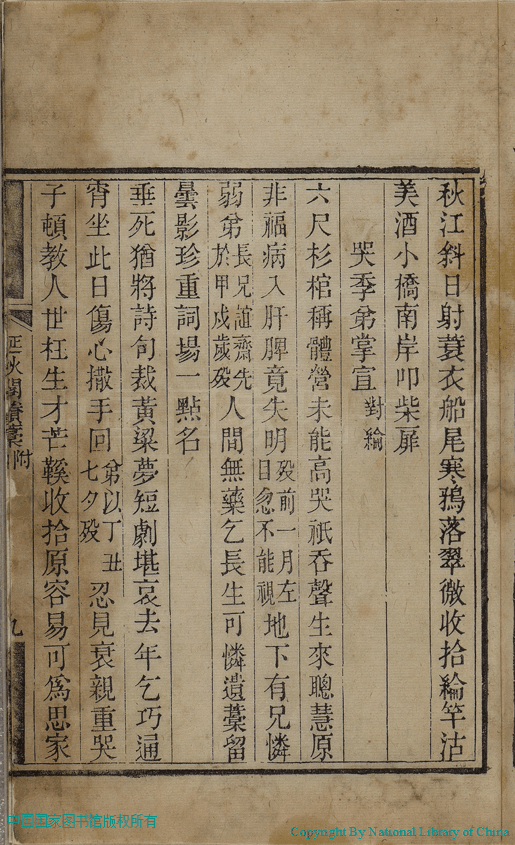 秋江斜日射蓑衣船尾寒鴉落翠微收拾綸竿沽
美酒小橋南岸叩柴扉
哭季弟掌宜對綸
六尺杉棺稱體營未能高哭祇吞聲生來聰慧原
非福病入肝脾竟失明歿前一月左目忽不能視地下有兄憐
弱弟長兄誼齋先於甲戌歲歿人間無藥乞長生可憐遺藁留
曇影珍重詞場一點名
垂死猶將詩句裁黃粱夢短劇堪哀去年乞巧通
宵坐此日傷心撒手回弟以丁丑七夕歿忍見衰親重哭
子頓教人世枉生才芒鞵收拾原容易可爲思家
附
九
中国国家图书馆版权所有
Copyright By National Library of China